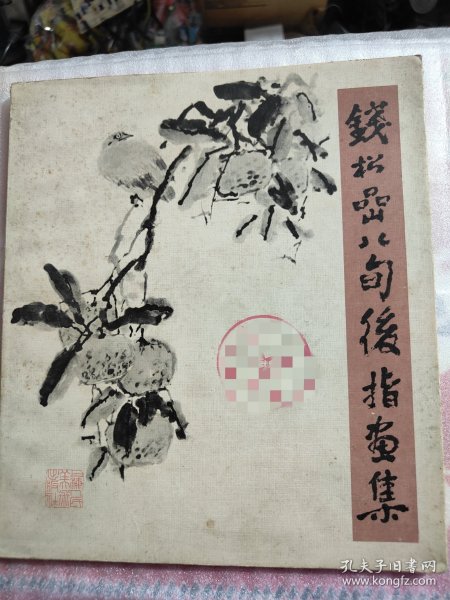 錢松嵒八旬後指畫集
孔夫子旧书网
www.kongfz.com